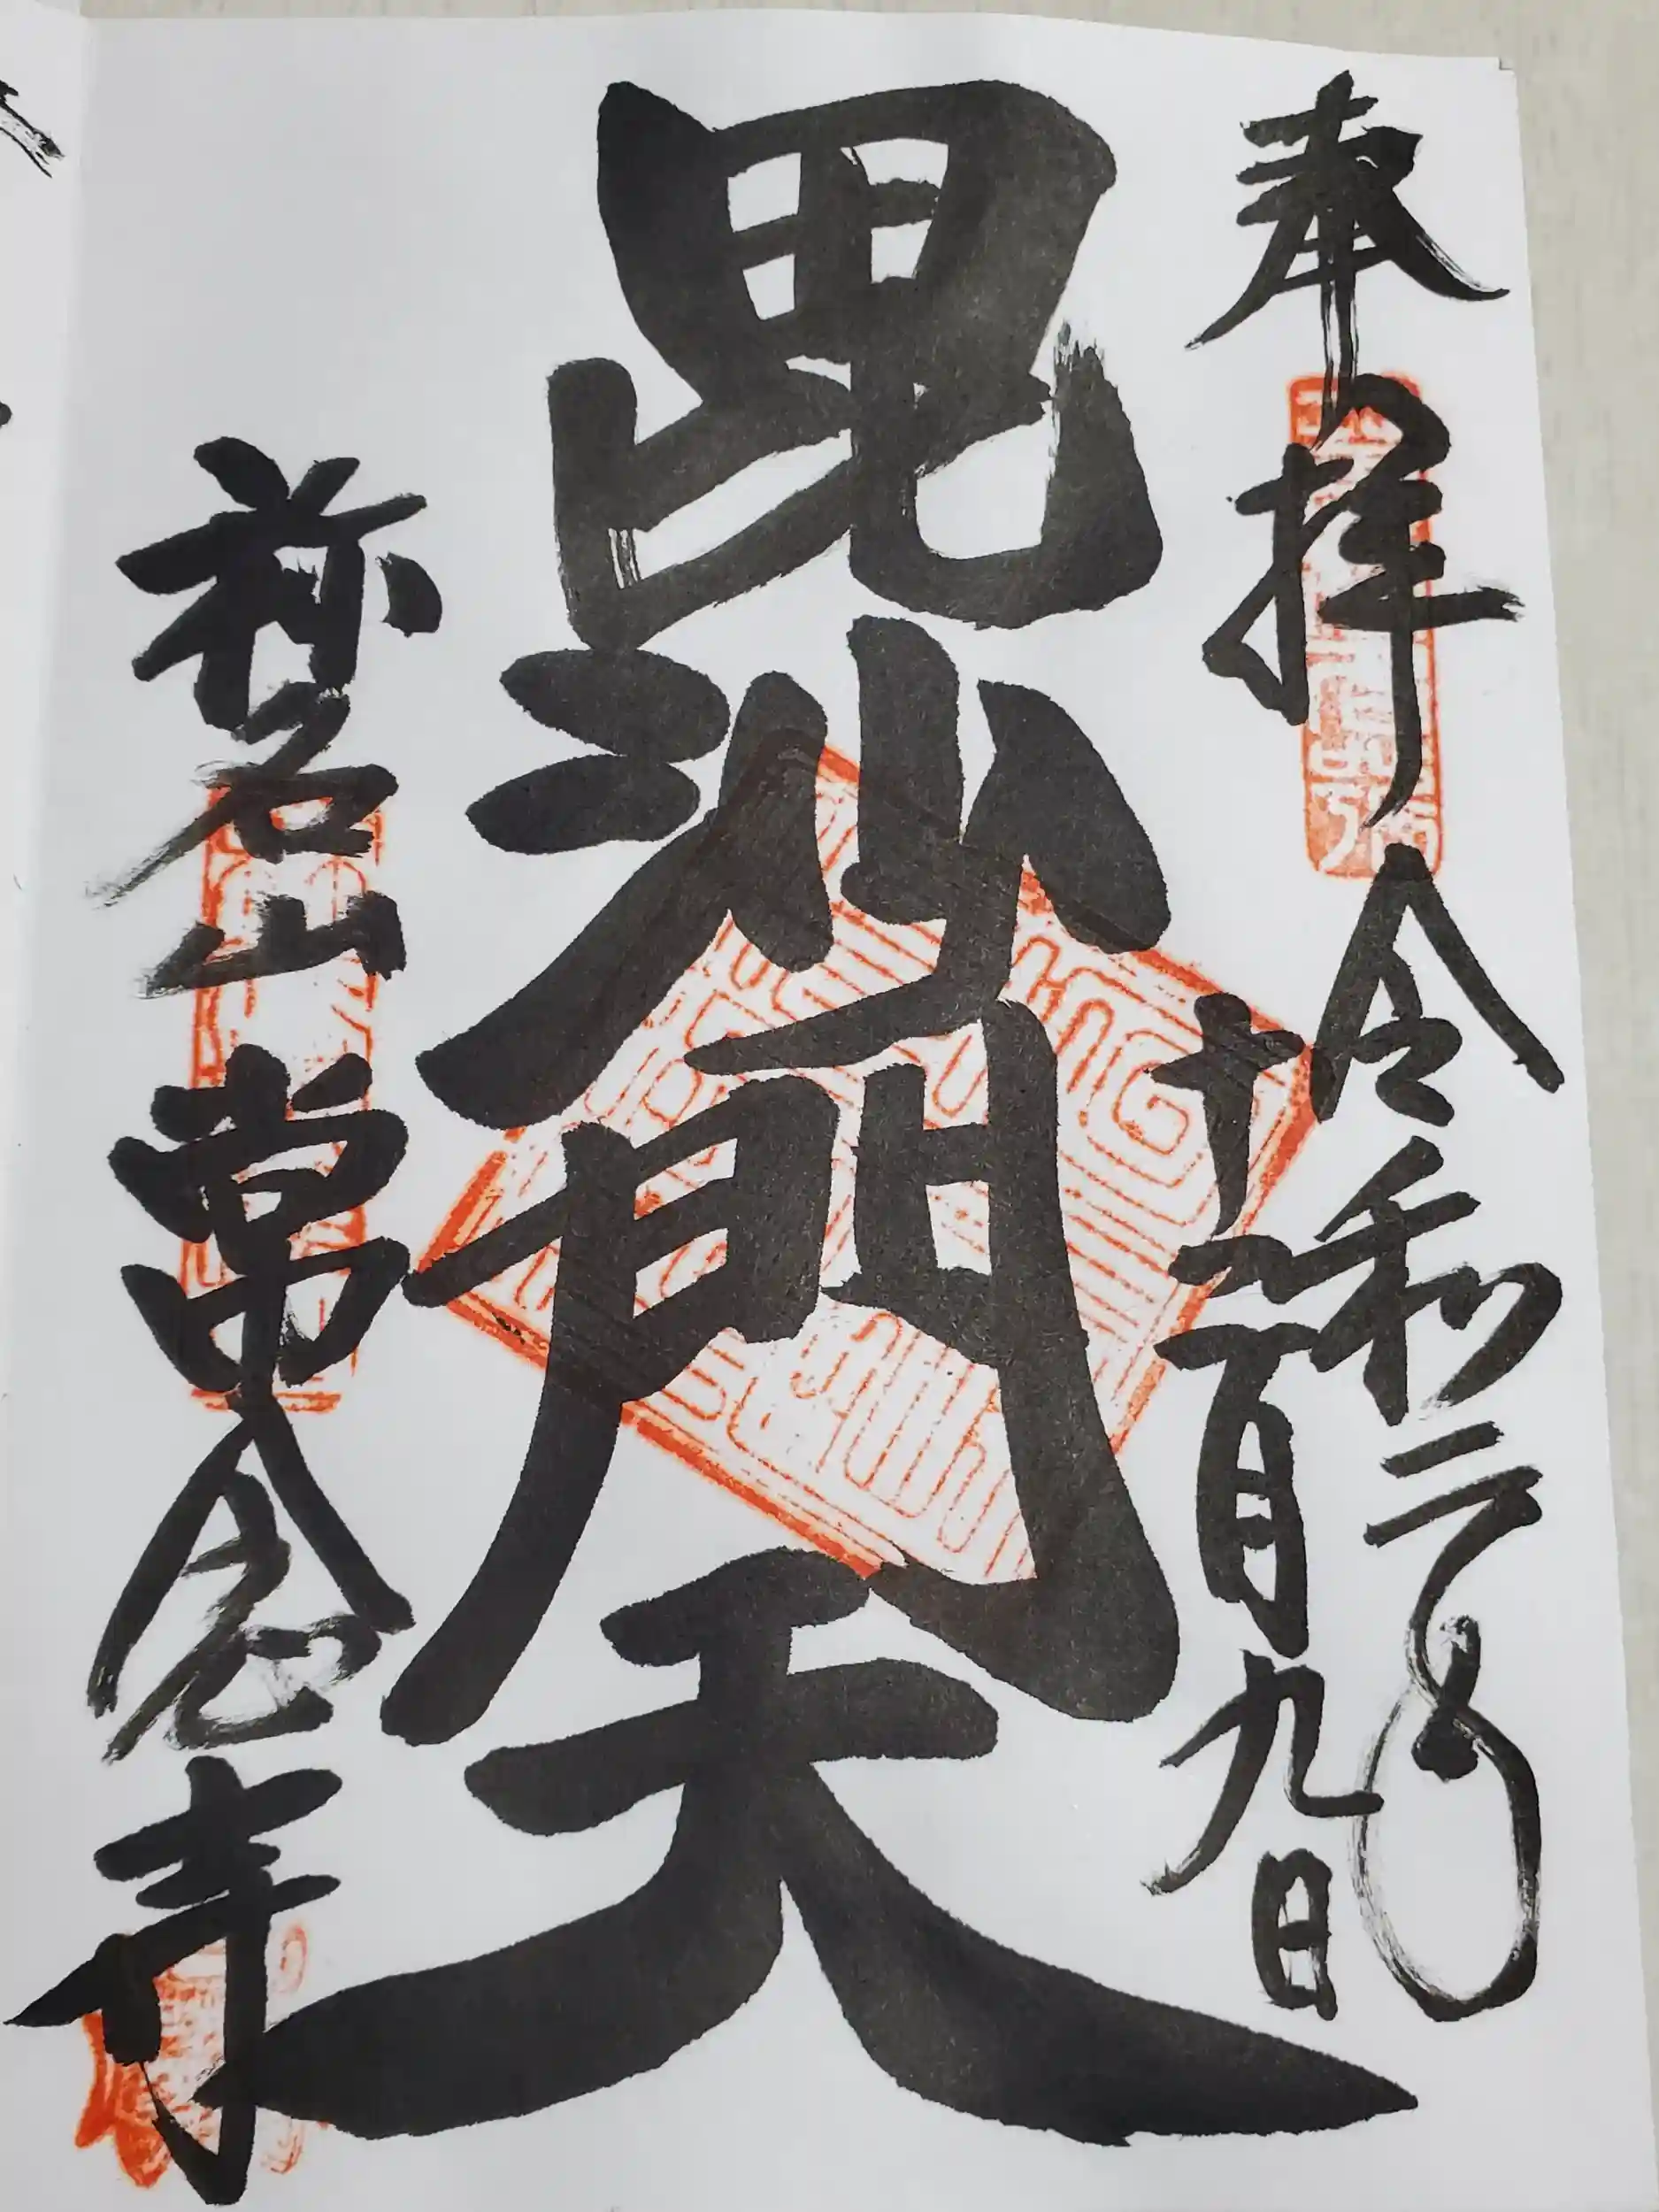 奉拝
令和二年
十二月九日
毘沙門天
称名山
常念寺